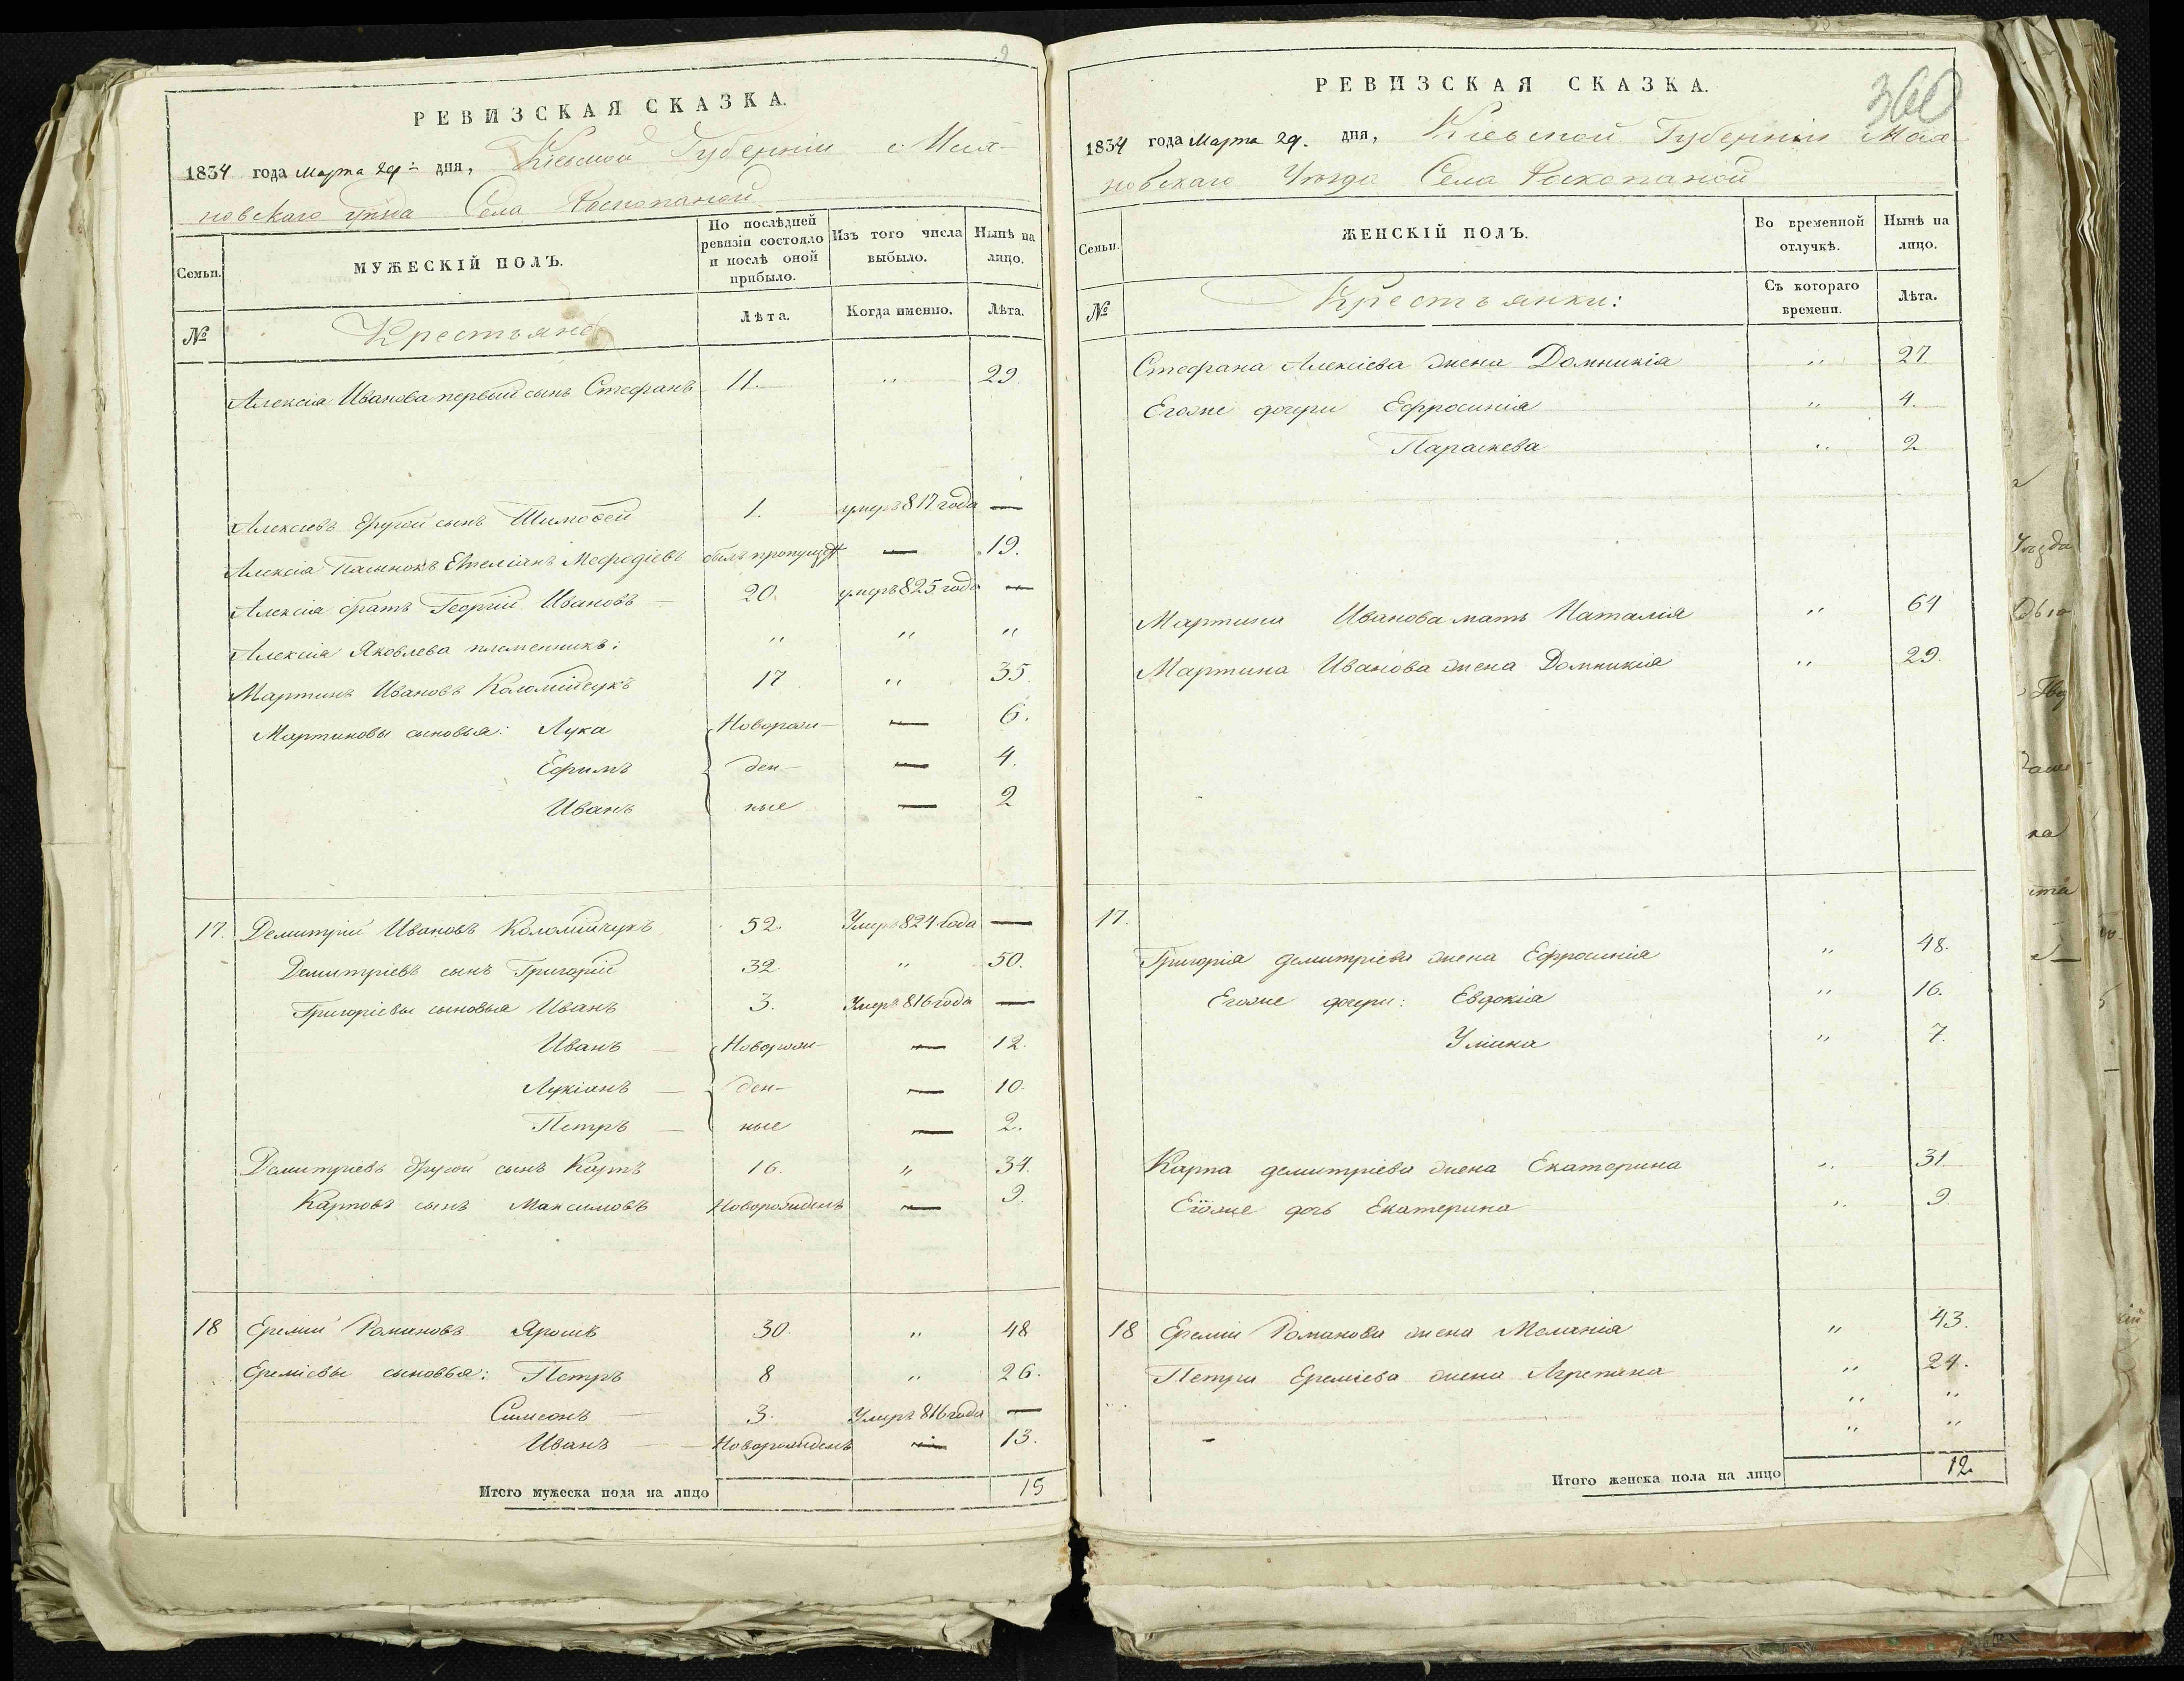 9
РЕВИЗСКАЯ СКАЗКА.
1834 года Марта 29 дня, Кіевской Губерніи
новскаго Села Роскопаной
Семьи.
МУЖЕСКІЙ ПОЛЪ.
По послѣдней ревизіи состояло и послѣ оной прибыло.
Изъ того числа выбыло.
Нынѣ на лицо.
№
Крестьяне
Лѣта.
Когда именно.
Лѣта.
Алексія Иванова первый сынъ Стефанъ 11. " 29.
Алексѣевъ другой сынъ Тимофей 1. умеръ 817 года —
Алексія пасынокъ Емеліанъ Мефедіевъ былъ — 19.
Алексія братъ Георгій Ивановъ — 20. умеръ 825 года —
Алексія Яковлева племенникъ: " " "
Мартинъ Ивановъ Коломійчукъ 17 " 35.
Мартиновы сыновья: Лука Новорож- — 6.
Ефимъ ден- — 4.
Иванъ ные — 2
17. Демитрій Ивановъ Коломійчукъ 52. Умеръ 824 года —
Демитріевъ сынъ Григорій 32. " 50.
Григоріевы сыновья Иванъ 3. Умеръ 816 года —
Иванъ — Новорож- — 12.
Лукіанъ — ден- — 10.
Петръ — ные — 2.
Демитріевъ другой сынъ Карпъ 16. " 34.
Карповъ сынъ Максимовъ Новорожденъ — 9.
18 Еремій Романовъ Ярошъ 30. " 48
Ереміевы сыновья: Петръ 8 " 26.
Симеонъ — 3. Умеръ 816 года —
Иванъ — Новорожденъ — 13.
Итого мужеска пола на лицо 15
360
РЕВИЗСКАЯ СКАЗКА.
1834 года Марта 29. дня, Кіевской Губерніи
новскаго Уѣзда Села Роскопаной
Семьи.
ЖЕНСКІЙ ПОЛЪ.
Во временной отлучкѣ.
Нынѣ на лицо.
№
Крестьянки:
Съ котораго времени.
Лѣта.
Стефана Алексіева жена Домникія " 27
Егоже дочери Ефросинія " 4.
Параскева " 2
Мартина Иванова мать Наталія " 64
Мартина Иванова жена Домникія " 29.
17.
Григорія демитріева жена Ефросинія " 48.
Егоже дочери: Евдокія " 16.
Уліана " 7.
Карпа демитріева жена Екатерина " 31
Егоже дочь Екатерина " 9.
18 Еремія Романова жена Меланія " 43.
Петра Ереміева жена Агрепина " 24.
" "
— " "
Итого женска пола на лицо 12.